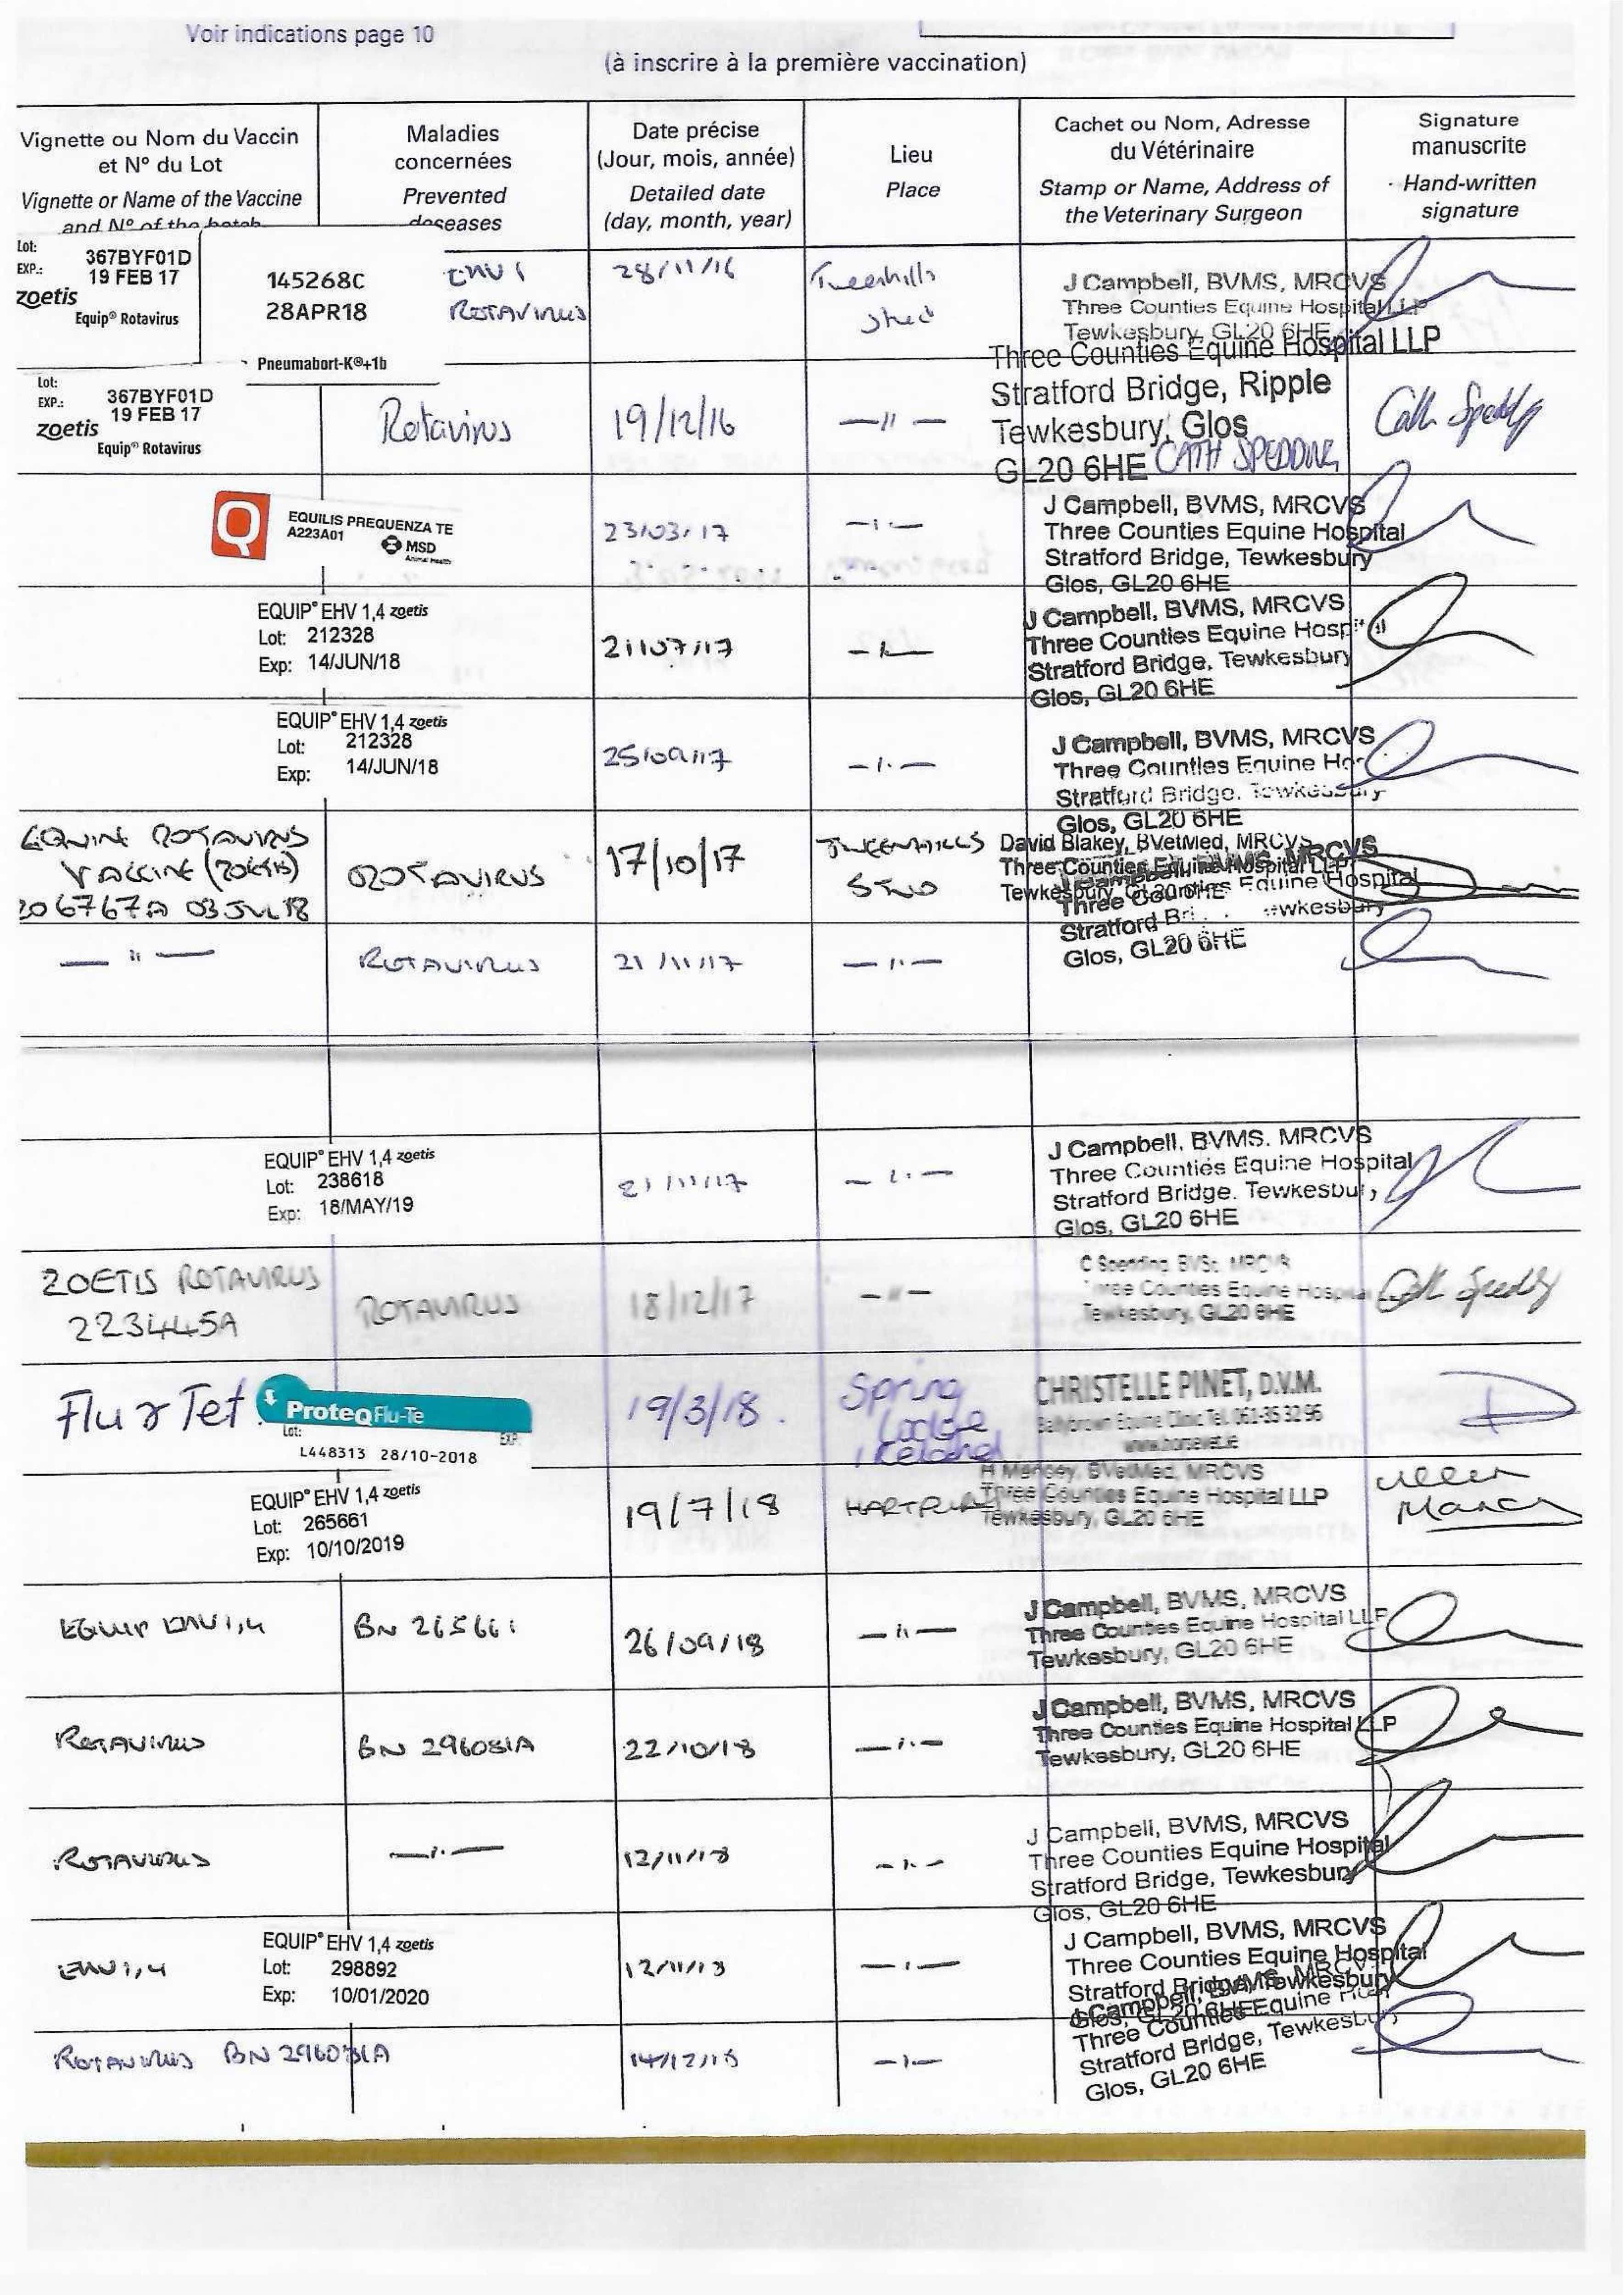 Voir indications page 10
(à inscrire à la première vaccination)
Vignette ou Nom du Vaccin
et N° du Lot
Vignette or Name of the Vaccine
and N° of the batch
Maladies
concernées
Prevented
deseases
Date précise
(Jour, mois, année)
Detailed date
(day, month, year)
Lieu
Place
Cachet ou Nom, Adresse
du Vétérinaire
Stamp or Name, Address of
the Veterinary Surgeon
Signature
manuscrite
Hand-written
signature
Lot: 367BYF01D
EXP.: 19 FEB 17
zoetis
Equip® Rotavirus
145268C
28APR18
Pneumabort-K®+1b
EHV 1
ROTAVIRUS
28/11/16
Tweenhills
Stud
J Campbell, BVMS, MRCVS
Three Counties Equine Hospital LLP
Tewkesbury, GL20 6HE
Lot: 367BYF01D
EXP.: 19 FEB 17
zoetis
Equip® Rotavirus
Rotavirus
19/12/16
—ıı—
Three Counties Equine Hospital LLP
Stratford Bridge, Ripple
Tewkesbury, Glos
GL20 6HE CATH SPEDDING
Cath Spedding
EQUILIS PREQUENZA TE
A223A01
MSD
Animal Health
23/03/17
J Campbell, BVMS, MRCVS
Three Counties Equine Hospital
Stratford Bridge, Tewkesbury
Glos, GL20 6HE
EQUIP® EHV 1,4 zoetis
Lot: 212328
Exp: 14/JUN/18
21/07/17
J Campbell, BVMS, MRCVS
Three Counties Equine Hospital
Stratford Bridge, Tewkesbury
Glos, GL20 6HE
EQUIP® EHV 1,4 zoetis
Lot: 212328
Exp: 14/JUN/18
25/09/17
J Campbell, BVMS, MRCVS
Three Counties Equine Ho
Stratford Bridge, Tewkesbury
Glos, GL20 6HE
EQUINE ROTAVIRUS
VACCINE (ZOETIS)
206767A 03 JUL 18
ROTAVIRUS
17/10/17
TWEENHILLS
STUD
David Blakey, BVetMed, MRCVS
Three Counties Equine Hospital LLP
Tewkesbury, GL20 6HE
— ıı —
ROTAVIRUS
21/11/17
—ıı—
Three Counties Equine Hospital
Glos, GL20 6HE
EQUIP® EHV 1,4 zoetis
Lot: 238618
Exp: 18/MAY/19
21/11/17
J Campbell, BVMS, MRCVS
Three Counties Equine Hospital
Stratford Bridge, Tewkesbury
Glos, GL20 6HE
ZOETIS ROTAVIRUS
223445A
ROTAVIRUS
18/12/17
—ıı—
C Spedding, BVSc, MRCVS
Three Counties Equine Hospital
Tewkesbury, GL20 6HE
Cath Spedding
Flu & Tet.
ProteqFlu-Te
Lot: EXP:
L448313 28/10-2018
19/3/18.
Spring
Lodge
Ireland
CHRISTELLE PINET, D.V.M.
Ballybrown Equine Clinic Tel. 061-35 32 96
www.horsevet.ie
EQUIP® EHV 1,4 zoetis
Lot: 265661
Exp: 10/10/2019
19/7/18
HARTPURY
BVetMed, MRCVS
Three Counties Equine Hospital LLP
Tewkesbury, GL20 6HE
EQUIP EHV 1,4
BN 265661
26/09/18
—ıı—
J Campbell, BVMS, MRCVS
Three Counties Equine Hospital LLP
Tewkesbury, GL20 6HE
ROTAVIRUS
BN 296081A
22/10/18
J Campbell, BVMS, MRCVS
Three Counties Equine Hospital LLP
Tewkesbury, GL20 6HE
ROTAVIRUS
12/11/18
J Campbell, BVMS, MRCVS
Three Counties Equine Hospital
Stratford Bridge, Tewkesbury
Glos, GL20 6HE
EHV 1,4
EQUIP® EHV 1,4 zoetis
Lot: 298892
Exp: 10/01/2020
12/11/18
J Campbell, BVMS, MRCVS
Three Counties Equine Hospital
Stratford Bridge, Tewkesbury
Glos, GL20 6HE
ROTAVIRUS BN 296081A
14/12/18
J Campbell, BVMS, MRCV
Three Counties Equine
Stratford Bridge, Tewkesbury
Glos, GL20 6HE